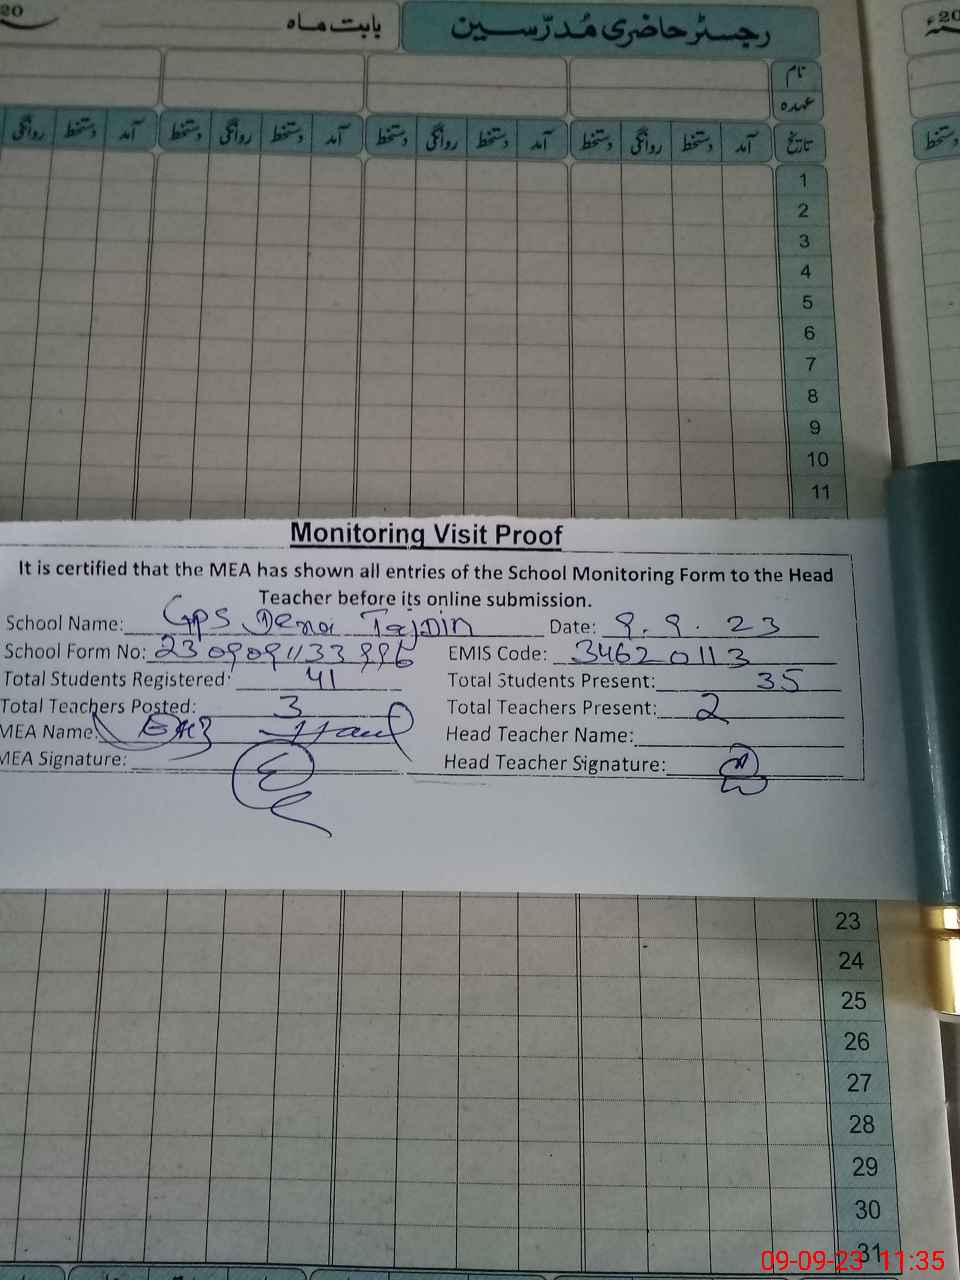 20 بابت ماہ رجسٹر حاضری مُدرّسین
نام
عہدہ
تاریخ آمد دستخط روانگی دستخط آمد دستخط روانگی دستخط آمد دستخط روانگی دستخط آمد دستخط روانگی
دستخط
1
2
3
4
5
6
7
8
9
10
11
Monitoring Visit Proof
It is certified that the MEA has shown all entries of the School Monitoring Form to the Head
Teacher before its online submission.
School Name: GPS Dera Tajdin Date: 9.9.23
School Form No: EMIS Code: 34620113
Total Students Registered: 41 Total Students Present: 35
Total Teachers Posted: 3 Total Teachers Present: 2
MEA Name: Head Teacher Name:
MEA Signature: Head Teacher Signature:
23
24
25
26
27
28
29
30
31
09-09-23 11:35